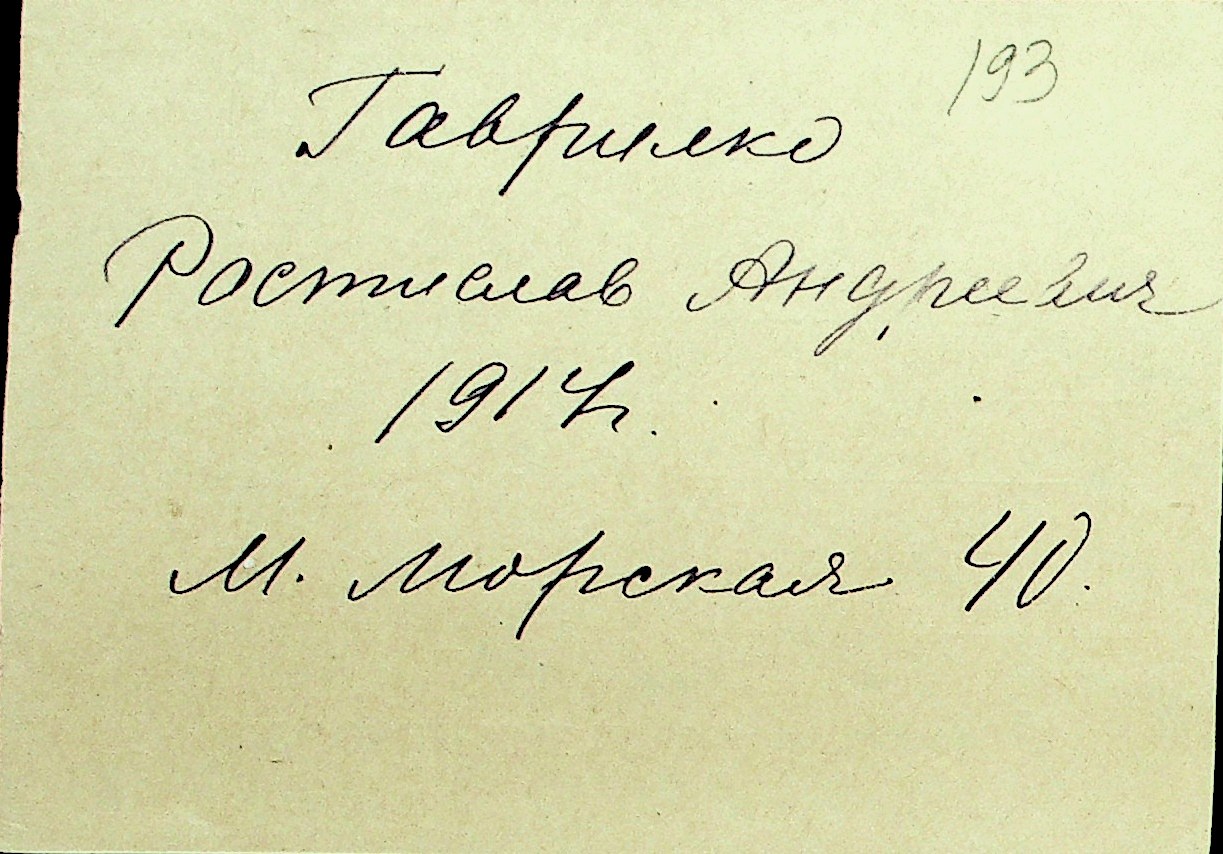 193
Гаврилко
Ростислав Андреевич
1917г.
М. Морская 40.